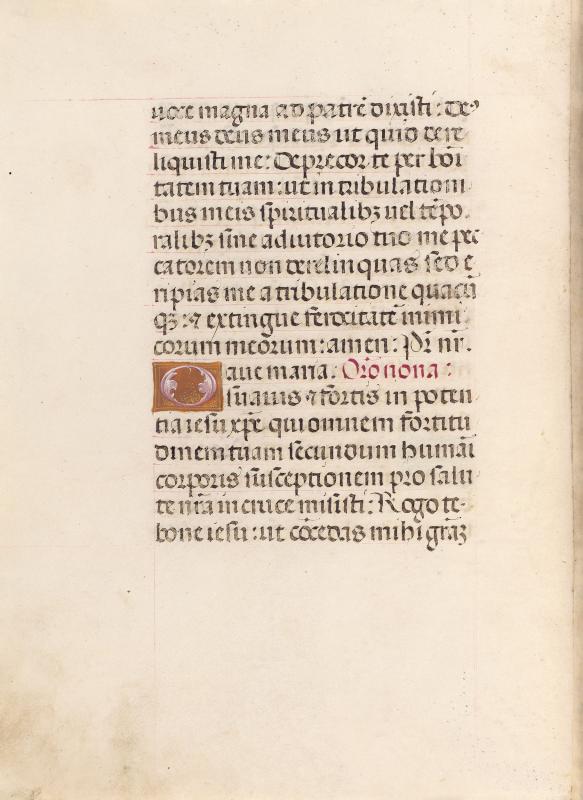 uoce magna ad patrē dixisti: de⁹
meus deus meus ut quid dere
liquisti me: Deprecor te per boī
tatem tuam: ut in tribulationi
bus meis spiritualibꝫ uel tēpo
ralibꝫ sine adiutorio tuo me pec
catorem non derelinquas sed e
ripias me a tribulatione quacū
qꝫ: ⁊ extingue ferocitatē inimi
corum meorum: amen: Pr̄ nr̄.
aue maria. Orō nona:
O suauis ⁊ fortis in poten
tia iesu xp̄e qui omnem fortitu
dinem tuam secundum humāi
corporis susceptionem pro salu
te nr̄a in cruce misisti: Rogo te
bone iesu: ut cōcedas mihi grāꝫ